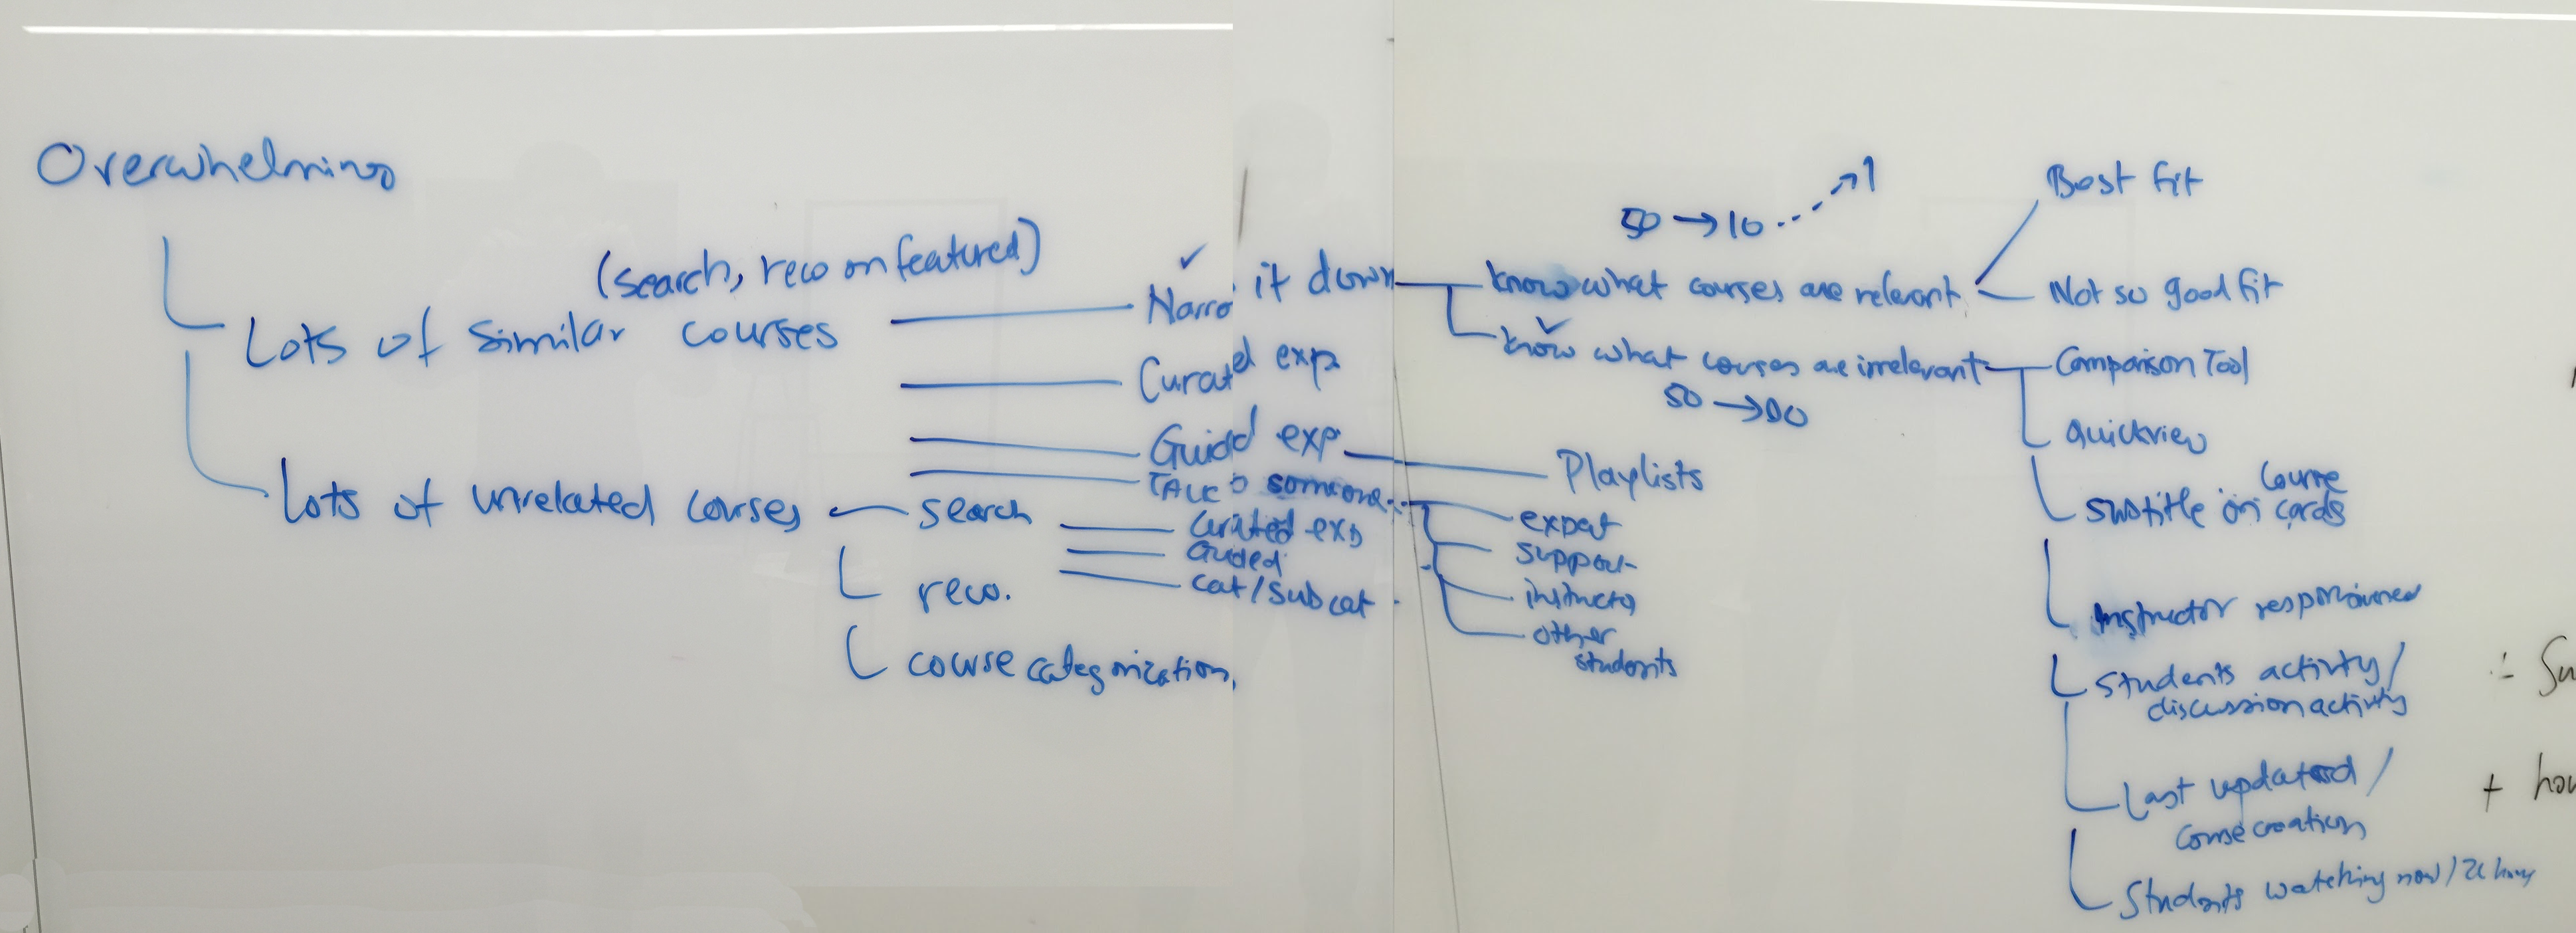 Overwhelming
(search, reco on featured)
Lots of similar courses
Narro it down
Curated exp
Guided exp
Talk to someone
Lots of unrelated courses
search
reco.
course categorization
Curated exp
Guided
cat/subcat
50 → 10 ⇢ 1
know what courses are relevant
know what courses are irrelevant
50 →
Playlists
expert
support
instructor
other
students
Best fit
Not so good fit
Comparison Tool
Quickview
subtitle on course
cards
Instructor
Students activity/
discussion activity
Last updated/
Course creation
Students watching now/
+